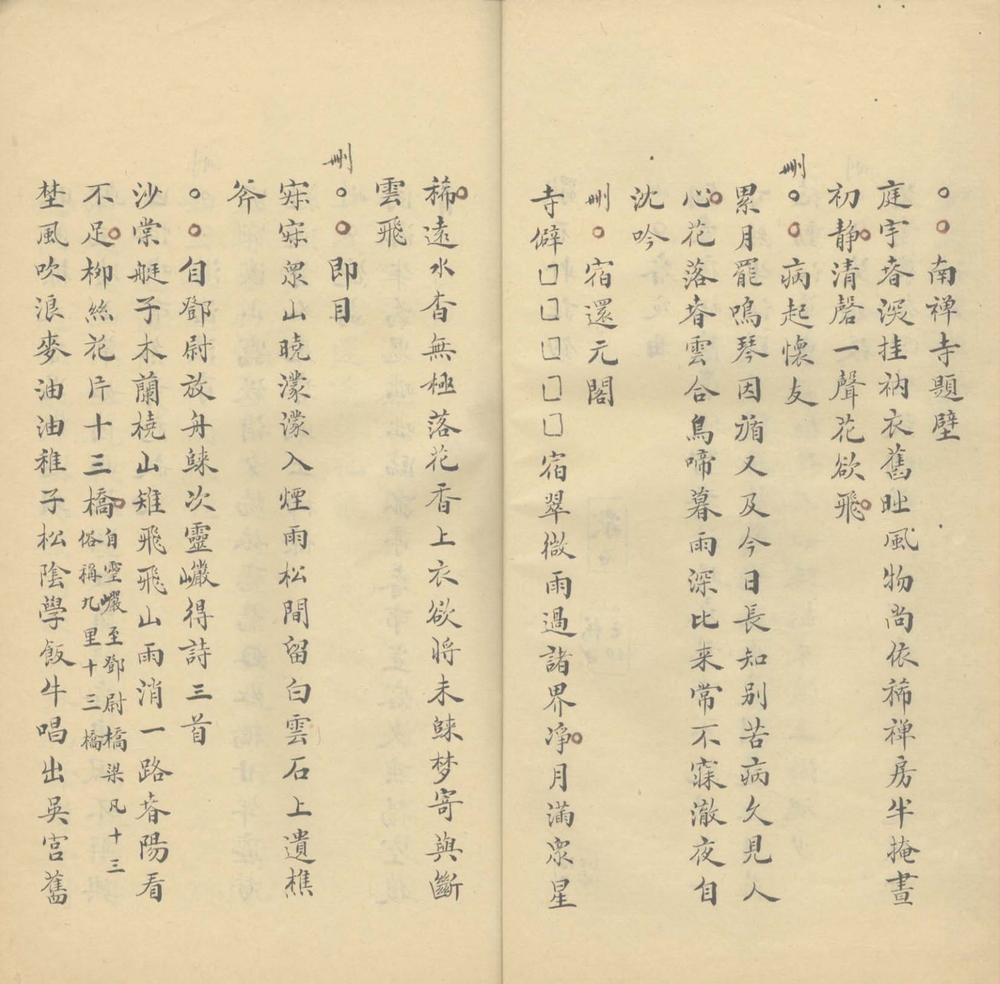 南禅寺題壁
庭宇春深挂衲衣舊時風物尚依稀禅房半掩晝
初静清磬一聲花欲飛
刪
病起懷友
累月罷鳴琴因循又及今日長知别苦病久見人
心花落春雲合鳥啼暮雨深比来常不寐澈夜自
沈吟
刪
宿還元閣
寺僻□□□□□宿翠微雨過諸界淨月滿衆星
稀遠水杳無極落花香上衣欲将未歸梦寄與斷
雲飛
刪
即目
寂寂衆山曉濛濛入煙雨松間留白雲石上遺樵
斧
自鄧尉放舟歸次靈巗得詩三首
沙棠艇子木蘭橈山雉飛飛山雨消一路春陽看
不足柳絲花片十三橋自靈巗至鄧尉橋梁凡十三俗稱九里十三橋
埜風吹浪麥油油稚子松陰學飯牛唱出吳宫舊